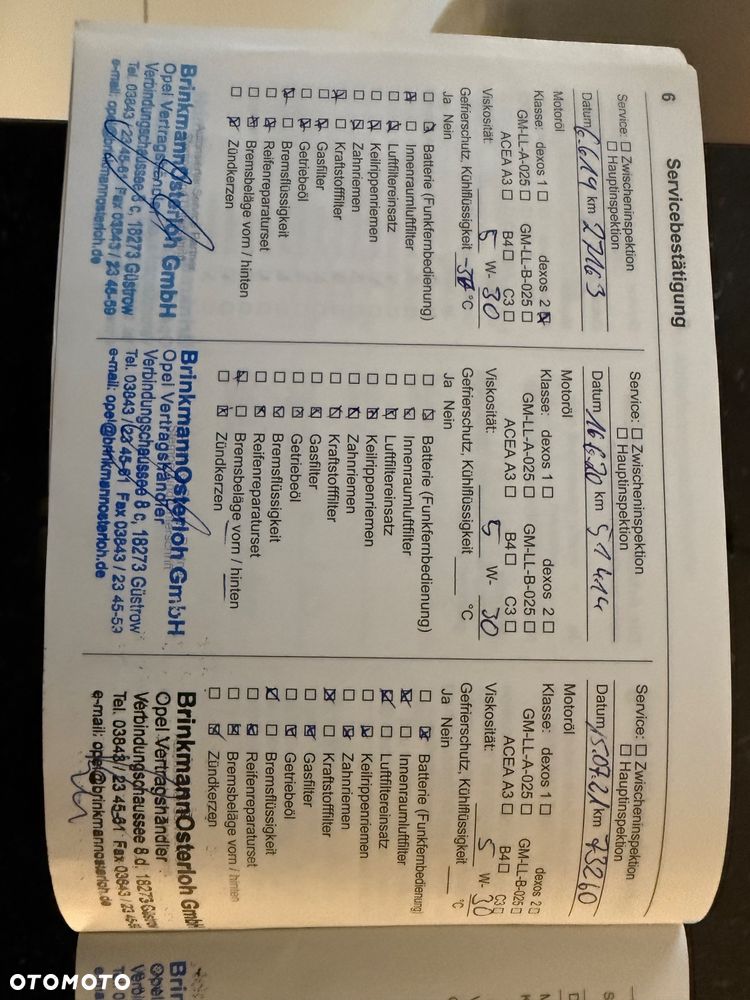 6
Servicebestätigung
Service: ☐ Zwischeninspektion
☐ Hauptinspektion
Datum 6.6.19 km 27163
Motoröl
Klasse: dexos 1 ☐ dexos 2 ☒
GM-LL-A-025 ☐ GM-LL-B-025 ☐
ACEA A3 ☐ B4 ☐ C3 ☐
Viskosität: 5 W- 30
Gefrierschutz, Kühlflüssigkeit °C
Ja Nein
Batterie (Funkfernbedienung)
Innenraumluftfilter
Luftfiltereinsatz
Keilrippenriemen
Zahnriemen
Kraftstofffilter
Gasfilter
Getriebeöl
Bremsflüssigkeit
Reifenreparaturset
Bremsbeläge vorn / hinten
Zündkerzen
BrinkmannOsterloh GmbH
Opel Vertragshändler
Verbindungschaussee 8 c, 18273 Güstrow
Tel. 03843 / 23 45-61 Fax 03843 / 23 45-59
e-mail: opel@brinkmannosterloh.de
Service: ☐ Zwischeninspektion
☐ Hauptinspektion
Datum 16.6.20 km 51414
Motoröl
Klasse: dexos 1 ☐ dexos 2 ☐
GM-LL-A-025 ☐ GM-LL-B-025 ☐
ACEA A3 ☐ B4 ☐ C3 ☐
Viskosität: 5 W- 30
Gefrierschutz, Kühlflüssigkeit °C
Ja Nein
Batterie (Funkfernbedienung)
Innenraumluftfilter
Luftfiltereinsatz
Keilrippenriemen
Zahnriemen
Kraftstofffilter
Gasfilter
Getriebeöl
Bremsflüssigkeit
Reifenreparaturset
Bremsbeläge vorn / hinten
Zündkerzen
BrinkmannOsterloh GmbH
Opel Vertragshändler
Verbindungschaussee 8 c, 18273 Güstrow
Tel. 03843 / 23 45-61 Fax 03843 / 23 45-59
e-mail: opel@brinkmannosterloh.de
Service: ☐ Zwischeninspektion
☐ Hauptinspektion
Datum 15.07.21 km 73260
Motoröl
Klasse: dexos 1 ☐ dexos 2 ☐
GM-LL-A-025 ☐ GM-LL-B-025 ☐
ACEA A3 ☐ B4 ☐ C3 ☐
Viskosität: 5 W- 30
Gefrierschutz, Kühlflüssigkeit °C
Ja Nein
Batterie (Funkfernbedienung)
Innenraumluftfilter
Luftfiltereinsatz
Keilrippenriemen
Zahnriemen
Kraftstofffilter
Gasfilter
Getriebeöl
Bremsflüssigkeit
Reifenreparaturset
Bremsbeläge vorn / hinten
Zündkerzen
BrinkmannOsterloh GmbH
Opel Vertragshändler
Verbindungschaussee 8 d, 18273 Güstrow
Tel. 03843 / 23 45-61 Fax 03843 / 23 45-59
e-mail: opel@brinkmannosterloh.de
OTOMOTO